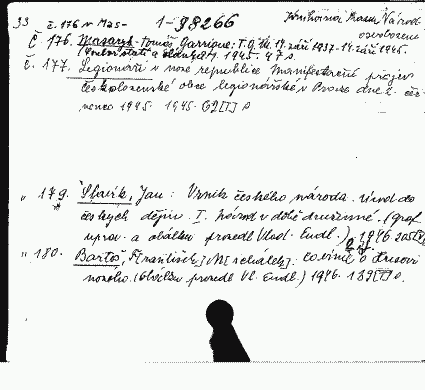 33 č. 176 n M25- 1-98266 Knihovna Hlasu Národní
osvobození
Č 176. Masaryk Tomáš Garrigue: T.G.M. 17. září 1937-14. září 1945.
1945. 47 s.
č. 177. Legionáři v nové republice Manifestační projev
československé obce legionářské v Praze dne č. čer-
vence 1945. 1945. 62[I] s
" 179. Slavík, Jan: Vznik českého národa. Úvod do
českých dějin. I. národ v době družinné. (graf
uprav. a obálku provedl Vlad. Eudl.) 1946 205[I] s
" 180. Bartoš, F[rantišek] M[ichálek]: Co víme o Husovi
nového. (Obálku provedl Vl. Eudl.) 1946. 139[I] s.